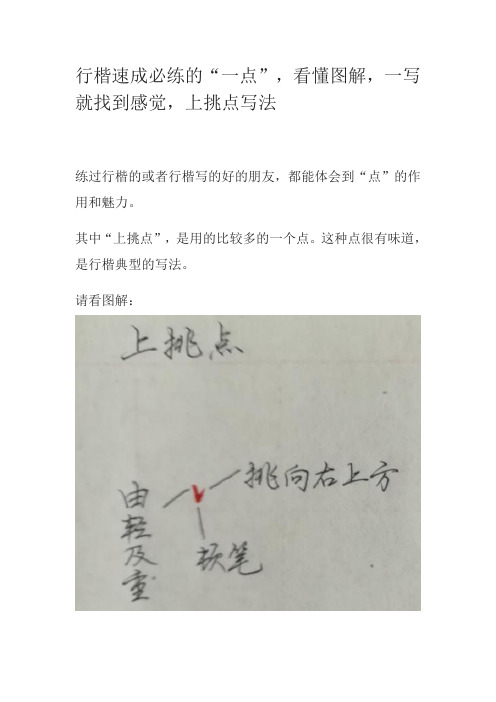 行楷速成必练的“一点”，看懂图解，一写
就找到感觉，上挑点写法
练过行楷的或者行楷写的好的朋友，都能体会到“点”的作
用和魅力。
其中“上挑点”，是用的比较多的一个点。这种点很有味道，
是行楷典型的写法。
请看图解：
上挑点
挑向右上方
由轻及重
顿笔